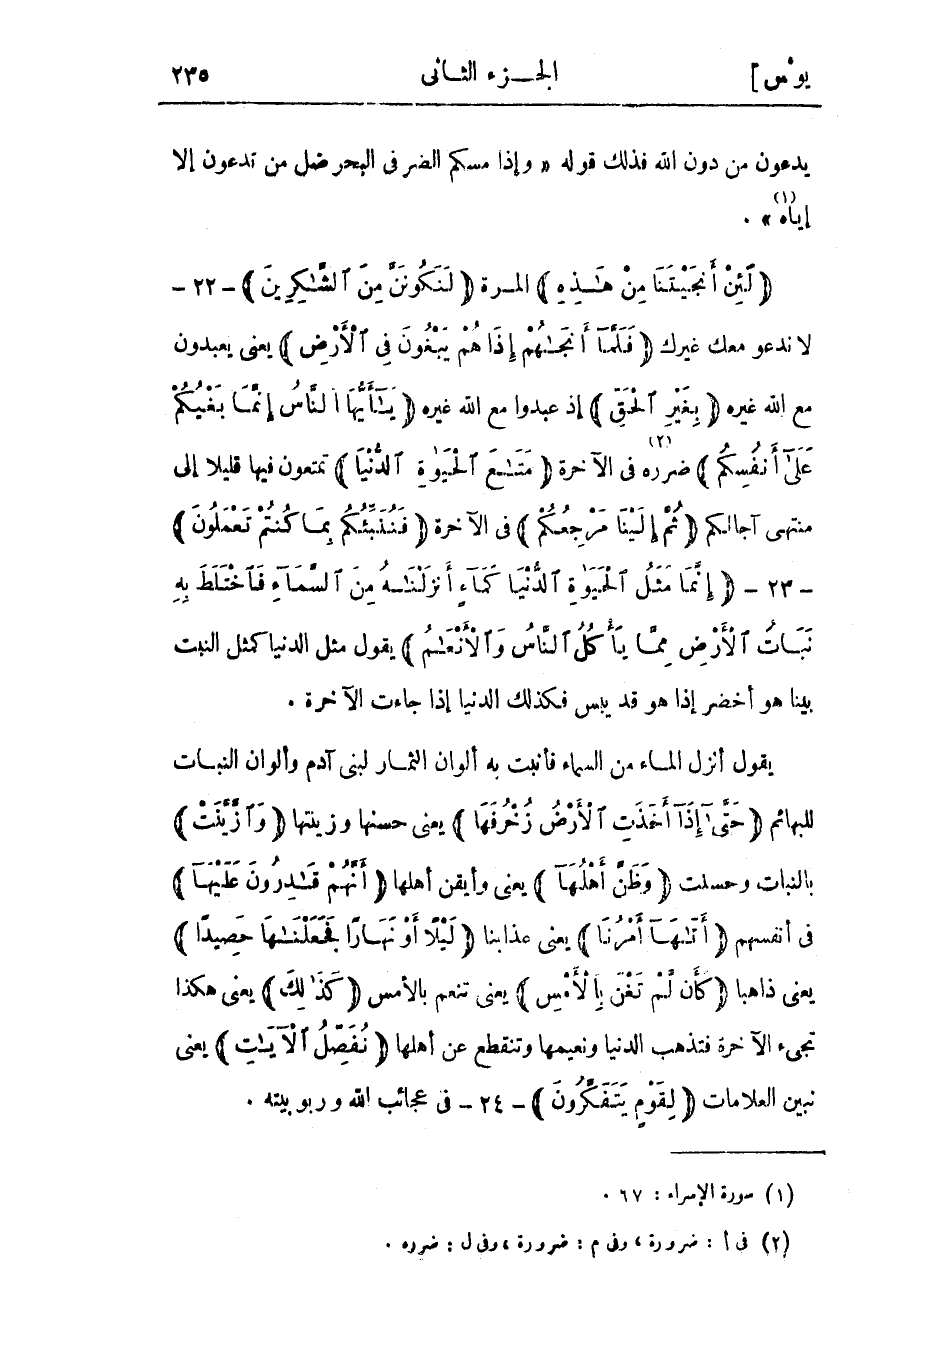 يونس ] الجـزء الثـانى ٢٣٥
يدعون من دون الله فذلك قوله « وإذا مسكم الضر فى البحر ضل من تدعون إلا
إياه (١) » .
﴿ لَئِنْ أَنجَيْتَنَا مِنْ هَـٰذِهِ ﴾ المـرة ﴿ لَنَكُونَنَّ مِنَ ٱلشَّـٰكِرِينَ ﴾ - ٢٢ -
لا ندعو معك غيرك ﴿ فَلَمَّآ أَنجَـٰهُمْ إِذَا هُمْ يَبْغُونَ فِى ٱلْأَرْضِ ﴾ يعنى يعبدون
مع الله غيره ﴿ بِغَيْرِ ٱلْحَقِّ ﴾ إذ عبدوا مع الله غيره ﴿ يَـٰٓأَيُّهَا ٱلنَّاسُ إِنَّمَا بَغْيُكُمْ
عَلَىٰٓ أَنفُسِكُم ﴾ ضرره (٢) فى الآخرة ﴿ مَتَـٰعَ ٱلْحَيَوٰةِ ٱلدُّنْيَا ﴾ تمتعون فيها قليلا إلى
منتهى آجالكم ﴿ ثُمَّ إِلَيْنَا مَرْجِعُكُمْ ﴾ فى الآخرة ﴿ فَنُنَبِّئُكُم بِمَا كُنتُمْ تَعْمَلُونَ ﴾
- ٢٣ - ﴿ إِنَّمَا مَثَلُ ٱلْحَيَوٰةِ ٱلدُّنْيَا كَمَآءٍ أَنزَلْنَـٰهُ مِنَ ٱلسَّمَآءِ فَٱخْتَلَطَ بِهِ
نَبَـاتُ ٱلْأَرْضِ مِمَّا يَأْكُلُ ٱلنَّاسُ وَٱلْأَنْعَـٰمُ ﴾ يقول مثل الدنيا كمثل النبت
بينا هو أخضر إذا هو قد يبس فكذلك الدنيا إذا جاءت الآخرة .
يقول أنزل المـاء من السماء فأنبت به ألوان الثمـار لبنى آدم وألوان النبـات
للبهائم ﴿ حَتَّىٰٓ إِذَآ أَخَذَتِ ٱلْأَرْضُ زُخْرُفَهَا ﴾ يعنى حسنها وزينتها ﴿ وَٱزَّيَّنَتْ ﴾
بالنبات وحسنت ﴿ وَظَنَّ أَهْلُهَآ ﴾ يعنى وأيقن أهلها ﴿ أَنَّهُمْ قَـٰدِرُونَ عَلَيْهَآ ﴾
فى أنفسهم ﴿ أَتَىٰهَـآ أَمْرُنَا ﴾ يعنى عذابنا ﴿ لَيْلًا أَوْ نَهَـارًا فَجَعَلْنَـٰهَا حَصِيدًا ﴾
يعنى ذاهبا ﴿ كَأَن لَّمْ تَغْنَ بِٱلْأَمْسِ ﴾ يعنى تنعم بالأمس ﴿ كَذَٰلِكَ ﴾ يعنى هكذا
تجىء الآخرة فتذهب الدنيا ونعيمها وتنقطع عن أهلها ﴿ نُفَصِّلُ ٱلْآيَـٰتِ ﴾ يعنى
نبين العلامات ﴿ لِقَوْمٍ يَتَفَكَّرُونَ ﴾ - ٢٤ - فى عجائب الله وربوبيته .
(١) سورة الإسراء : ٦٧ .
(٢) فى أ : ضرورة ، وفى م : ضرورة ، وفى ل : ضرره .